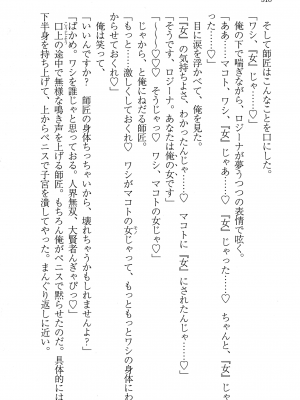 そして師匠はこんなことを口にした。
「ワシ、『女』じゃった……♡」
俺の下で喘ぎながら、ロジーナが夢うつつの表情で呟く。
「ああ……マコト、ワシ、『女』じゃあ……♡　ちゃんと、『女』じゃ
った……♡」
目に涙を浮かべて、俺を見た。
「『女』の気持ちよさ、わかったんじゃ……♡　マコトに『女』にされたんじゃ……♡」
「そうです、ロジーナ。あなたは俺の女です」
「～～～♡♡　そうっ……♡　ワシ、マコトの女じゃ♡」
じゃから、と俺にねだる師匠。
「もっと……激しくしておくれ♡　ワシがマコトの女じゃって、もっともっとワシの身体にわ
からせておくれ♡」
俺は笑って、
「いいんですか？　師匠の身体ちっちゃいから、壊れちゃうかもしれませんよ？」
「ばかめ。ワシを誰じゃと思っておる。人界無双、大賢者んぎゃぴっ♡」
口上の途中で無様な鳴き声を上げる師匠。もちろん俺がペニスで黙らせたのだ。具体的には
下半身を持ち上げて、上からペニスで子宮を潰してやった。まんぐり返しに近い。